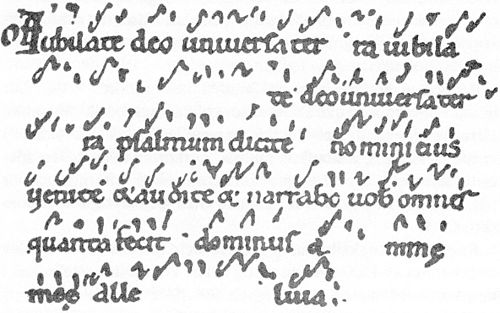 Iubilate deo universa ter ra iubila
te deo universa ter
ra psalmum dicite nomini eius
venite & audite & narrabo vob omnes
quanta fecit dominus anime
meę alleluia.